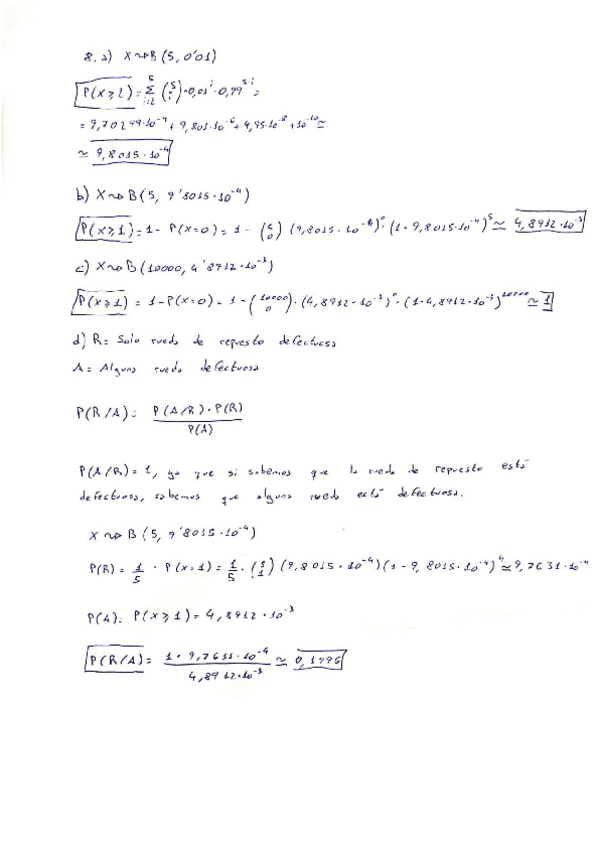 8. a) X ~> B(5, 0'01)
P(X ≥ 2) = Σ_{i=2}^{5} (5 i) · 0,01^i · 0,99^{5-i} =
= 9,70299·10^{-4} + 9,801·10^{-6} + 4,95·10^{-8} + 10^{-10} ≃
≃ 9,8015·10^{-4}
b) X ~> B(5, 9'8015·10^{-4})
P(X ≥ 1) = 1 - P(X=0) = 1 - (5 0) (9,8015·10^{-4})^0 · (1 - 9,8015·10^{-4})^5 ≃ 4,8912·10^{-3}
c) X ~> B(10000, 4'8912·10^{-3})
P(X ≥ 1) = 1 - P(X=0) = 1 - (10000 0) · (4,8912·10^{-3})^0 · (1 - 4,8912·10^{-3})^{10000} ≃ 1
d) R = Solo rueda de repuesto defectuosa
A = Alguna rueda defectuosa
P(R/A) = P(A/R) · P(R) / P(A)
P(A/R) = 1, ya que si sabemos que la rueda de repuesto está
defectuosa, sabemos que alguna rueda está defectuosa.
X ~> B(5, 9'8015·10^{-4})
P(R) = 1/5 · P(X=1) = 1/5 · (5 1) (9,8015·10^{-4}) (1 - 9,8015·10^{-4})^4 ≃ 9,7631·10^{-4}
P(A) = P(X ≥ 1) = 4,8912·10^{-3}
P(R/A) = 1 · 9,7631·10^{-4} / 4,8912·10^{-3} ≃ 0,1996